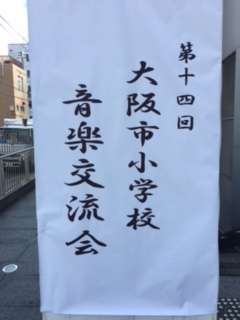 第十四回
大阪市小学校
音楽交流会